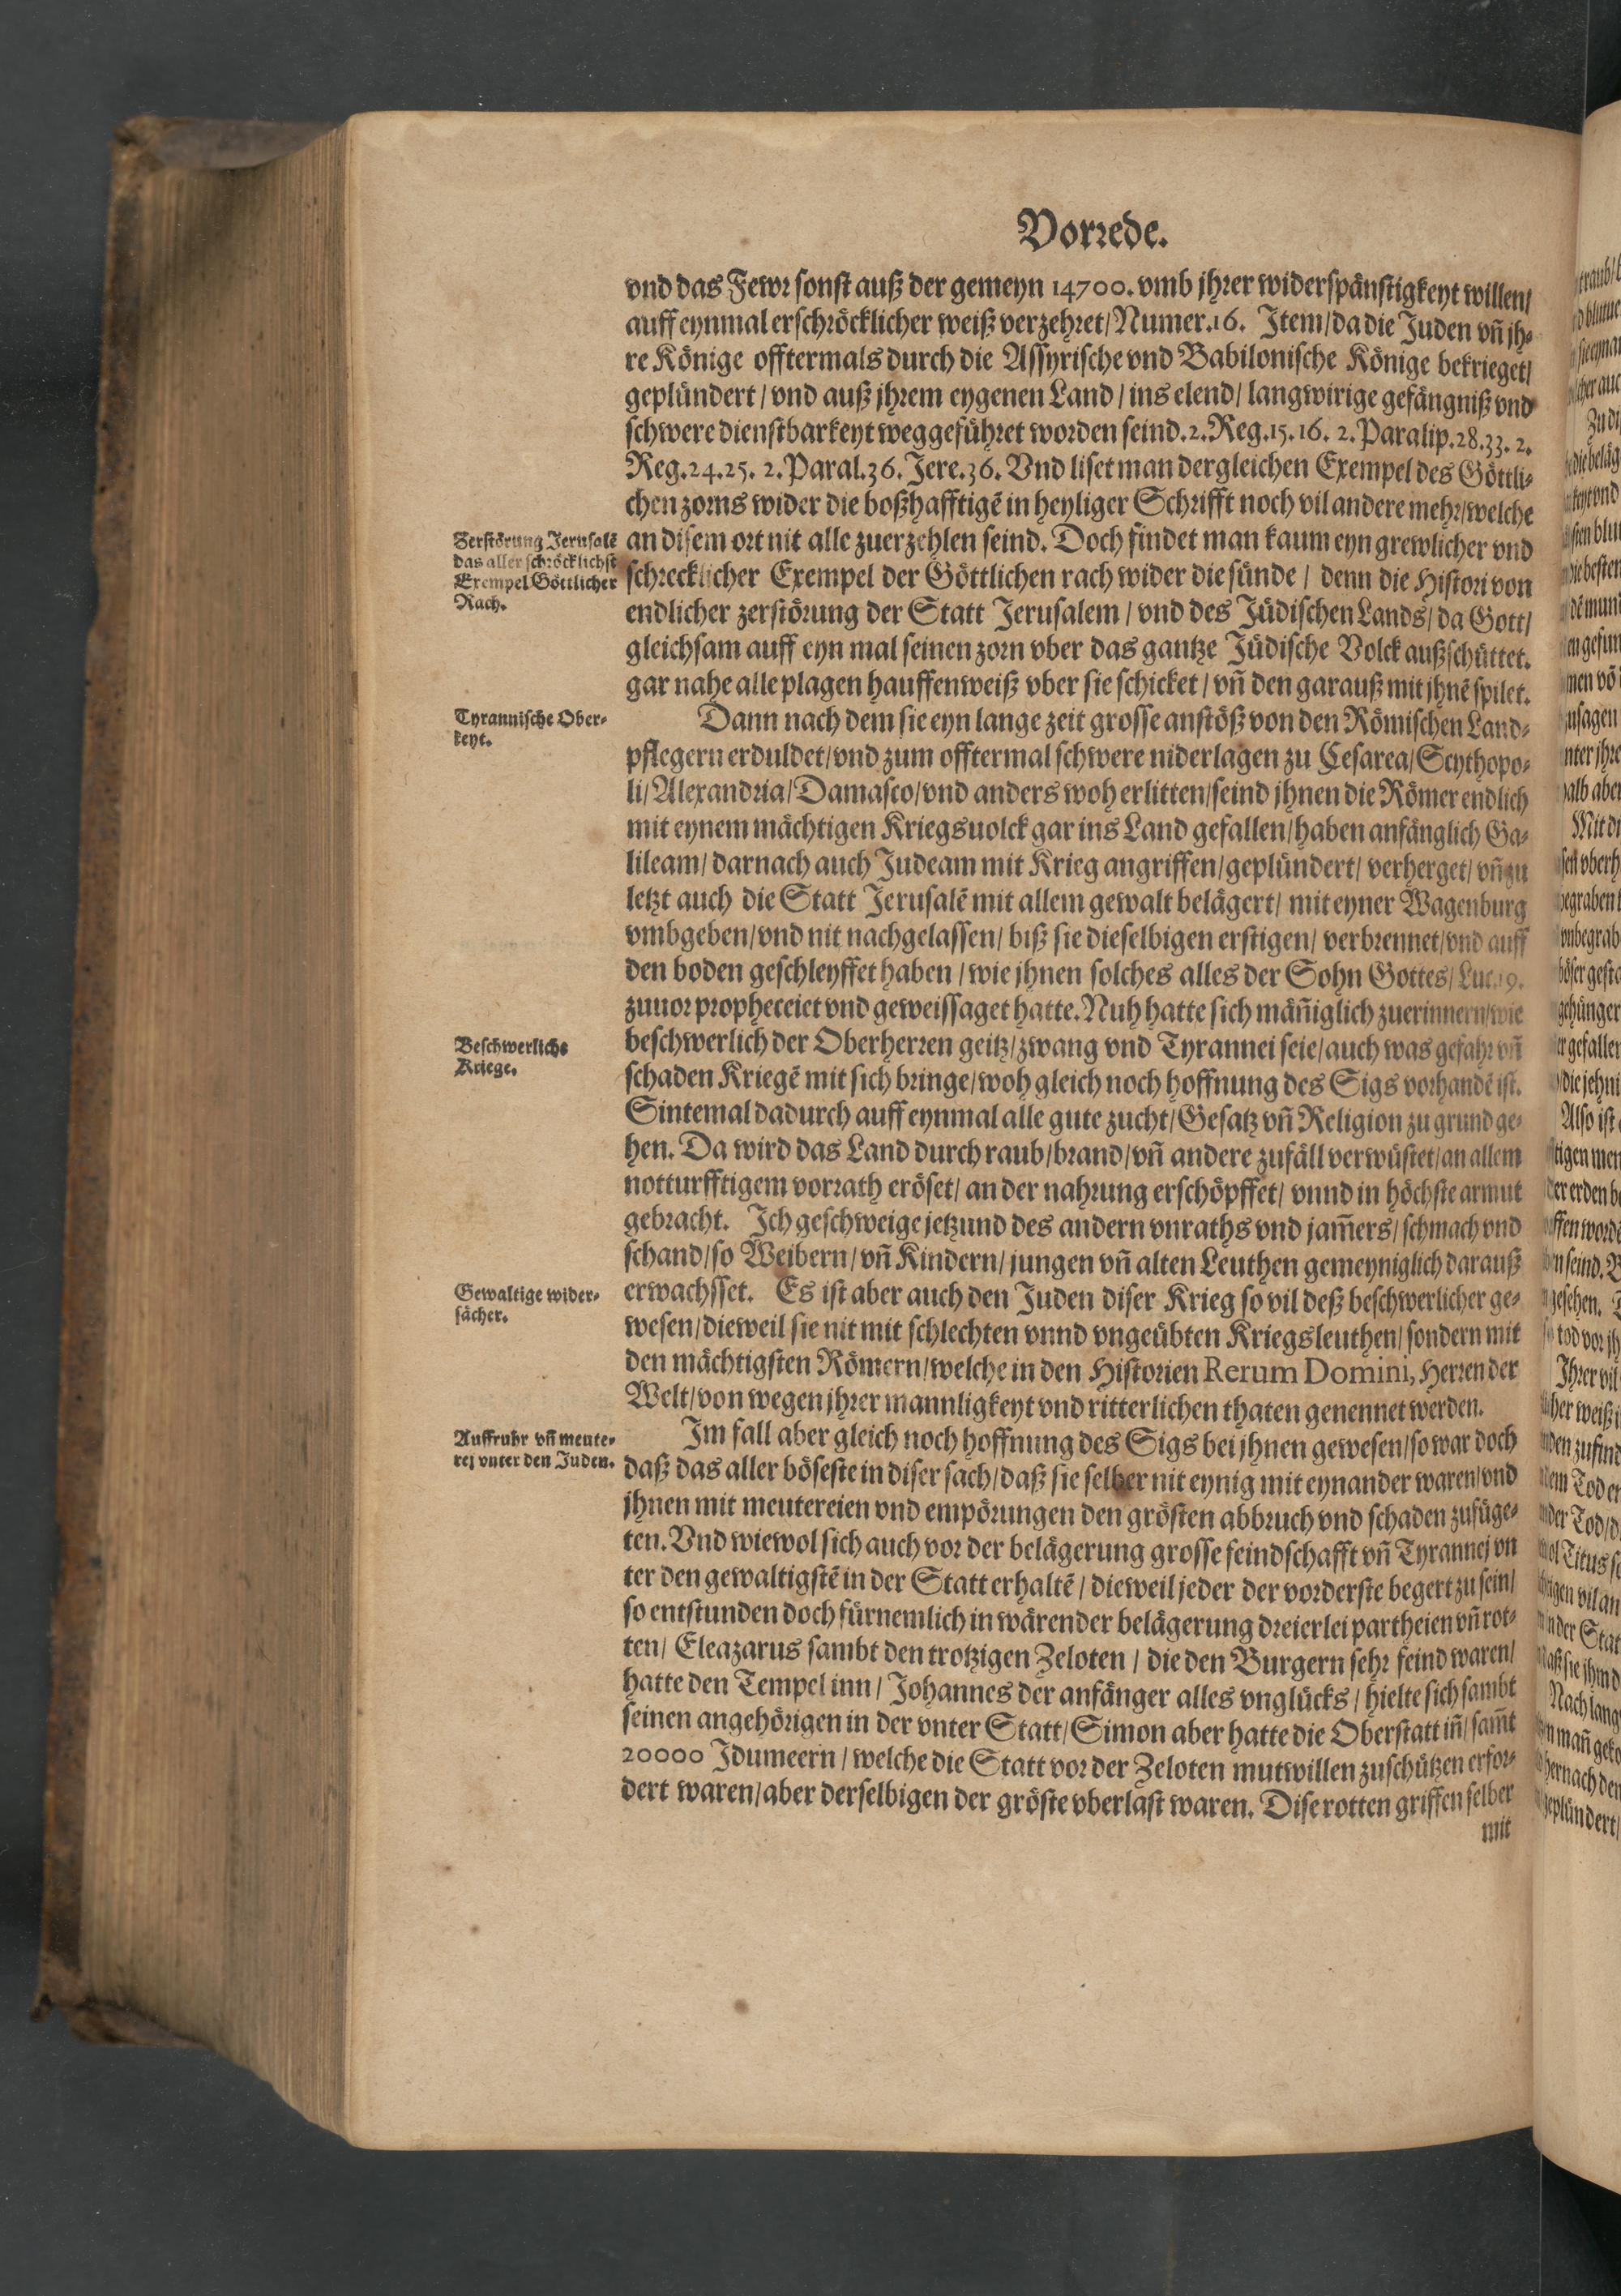 Vorrede.
vnd das Fewr sonst auß der gemeyn 14700. vmb jhrer widerspänstigkeyt willen/
auff eynmal erschröcklicher weiß verzehret/ Numer.16. Item/ da die Juden vñ jh⸗
re Könige offtermals durch die Assyrische vnd Babilonische Könige bekrieget/
geplündert / vnd auß jhrem eygenen Land / ins elend / langwirige gefängniß vnd
schwere dienstbarkeyt weggeführet worden seind. 2. Reg. 15. 16. 2. Paralip. 28. 33. 2.
Reg. 24. 25. 2. Paral. 36. Jere. 36. Vnd liset man dergleichen Exempel des Göttli⸗
chen zorns wider die boßhafftigē in heyliger Schrifft noch vil andere mehr/ welche
Zerstörung Jerusalē
das aller schröcklichst
Exempel Göttlicher
Rach.
an disem ort nit alle zuerzehlen seind. Doch findet man kaum eyn grewlicher vnd
schrecklicher Exempel der Göttlichen rach wider die sünde / denn die Histori von
endlicher zerstörung der Statt Jerusalem / vnd des Jüdischen Lands / da Gott/
gleichsam auff eyn mal seinen zorn vber das gantze Jüdische Volck außschüttet.
gar nahe alle plagen hauffenweiß vber sie schicket / vñ den garauß mit jhnē spilet.
Tyrannische Ober⸗
keyt.
Dann nach dem sie eyn lange zeit grosse anstöß von den Römischen Land⸗
pflegern erduldet/ vnd zum offtermal schwere niderlagen zu Cesarea/ Scythopo⸗
li/ Alexandria/ Damasco/ vnd anders woh erlitten/ seind jhnen die Römer endlich
mit eynem mächtigen Kriegsuolck gar ins Land gefallen/ haben anfänglich Ga⸗
lileam/ darnach auch Judeam mit Krieg angriffen/ geplündert/ verherget/ vñ zu
letzt auch die Statt Jerusalē mit allem gewalt belägert/ mit eyner Wagenburg
vmbgeben/ vnd nit nachgelassen/ biß sie dieselbigen erstigen/ verbrennet/ vnd auff
den boden geschleyffet haben / wie jhnen solches alles der Sohn Gottes/ Luc. 19.
zuuor propheceiet vnd geweissaget hatte. Nuh hatte sich mäñiglich zuerinnern/ wie
Beschwerliche
Kriege.
beschwerlich der Oberherren geitz/ zwang vnd Tyrannei seie/ auch was gefahr vñ
schaden Kriegē mit sich bringe/ woh gleich noch hoffnung des Sigs vorhandē ist.
Sintemal dadurch auff eynmal alle gute zucht/ Gesatz vñ Religion zu grund ge⸗
hen. Da wird das Land durch raub/ brand/ vñ andere zufäll verwüstet/ an allem
notturfftigem vorrath eröset/ an der nahrung erschöpffet/ vnnd in höchste armut
gebracht. Ich geschweige jetzund des andern vnraths vnd jam̃ers/ schmach vnd
schand/ so Weibern/ vñ Kindern/ jungen vñ alten Leuthen gemeyniglich darauß
Gewaltige wider⸗
sächer.
erwachsset. Es ist aber auch den Juden diser Krieg so vil deß beschwerlicher ge⸗
wesen/ dieweil sie nit mit schlechten vnnd vngeübten Kriegsleuthen/ sondern mit
den mächtigsten Römern/ welche in den Historien Rerum Domini, Herren der
Welt/ von wegen jhrer mannligkeyt vnd ritterlichen thaten genennet werden.
Auffruhr vñ meute⸗
rej vnter den Juden.
Im fall aber gleich noch hoffnung des Sigs bei jhnen gewesen/ so war doch
daß das aller böseste in diser sach/ daß sie selber nit eynig mit eynander waren/ vnd
jhnen mit meutereien vnd empörungen den grösten abbruch vnd schaden zufüge⸗
ten. Vnd wiewol sich auch vor der belägerung grosse feindschafft vñ Tyrannej vn
ter den gewaltigstē in der Statt erhaltē / dieweil jeder der vorderste begert zu sein/
so entstunden doch fürnemlich in wärender belägerung dreierlei partheien vñ rot⸗
ten/ Eleazarus sambt den trotzigen Zeloten / die den Burgern sehr feind waren/
hatte den Tempel inn / Johannes der anfänger alles vnglücks / hielte sich sambt
seinen angehörigen in der vnter Statt/ Simon aber hatte die Oberstatt iñ/ sam̃t
20000 Idumeern / welche die Statt vor der Zeloten mutwillen zuschützen erfor⸗
dert waren/ aber derselbigen der gröste vberlast waren. Dise rotten griffen selber
mit